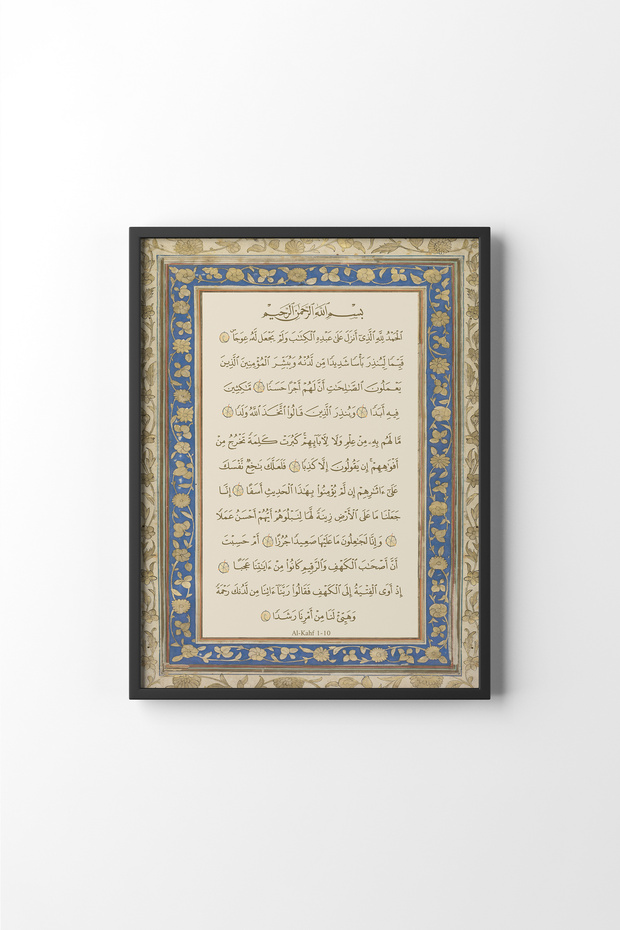 بِسْمِ ٱللَّهِ ٱلرَّحْمَٰنِ ٱلرَّحِيمِ
ٱلْحَمْدُ لِلَّهِ ٱلَّذِىٓ أَنزَلَ عَلَىٰ عَبْدِهِ ٱلْكِتَٰبَ وَلَمْ يَجْعَل لَّهُۥ عِوَجَا ۜ ۝١
قَيِّمًا لِّيُنذِرَ بَأْسًا شَدِيدًا مِّن لَّدُنْهُ وَيُبَشِّرَ ٱلْمُؤْمِنِينَ ٱلَّذِينَ
يَعْمَلُونَ ٱلصَّٰلِحَٰتِ أَنَّ لَهُمْ أَجْرًا حَسَنًا ۝٢ مَّٰكِثِينَ
فِيهِ أَبَدًا ۝٣ وَيُنذِرَ ٱلَّذِينَ قَالُوا۟ ٱتَّخَذَ ٱللَّهُ وَلَدًا ۝٤
مَّا لَهُم بِهِۦ مِنْ عِلْمٍ وَلَا لِءَابَآئِهِمْ ۚ كَبُرَتْ كَلِمَةً تَخْرُجُ مِنْ
أَفْوَٰهِهِمْ ۚ إِن يَقُولُونَ إِلَّا كَذِبًا ۝٥ فَلَعَلَّكَ بَٰخِعٌ نَّفْسَكَ
عَلَىٰٓ ءَاثَٰرِهِمْ إِن لَّمْ يُؤْمِنُوا۟ بِهَٰذَا ٱلْحَدِيثِ أَسَفًا ۝٦ إِنَّا
جَعَلْنَا مَا عَلَى ٱلْأَرْضِ زِينَةً لَّهَا لِنَبْلُوَهُمْ أَيُّهُمْ أَحْسَنُ عَمَلًا
۝٧ وَإِنَّا لَجَٰعِلُونَ مَا عَلَيْهَا صَعِيدًا جُرُزًا ۝٨ أَمْ حَسِبْتَ
أَنَّ أَصْحَٰبَ ٱلْكَهْفِ وَٱلرَّقِيمِ كَانُوا۟ مِنْ ءَايَٰتِنَا عَجَبًا ۝٩
إِذْ أَوَى ٱلْفِتْيَةُ إِلَى ٱلْكَهْفِ فَقَالُوا۟ رَبَّنَآ ءَاتِنَا مِن لَّدُنكَ رَحْمَةً
وَهَيِّئْ لَنَا مِنْ أَمْرِنَا رَشَدًا ۝١٠
Al-Kahf 1-10